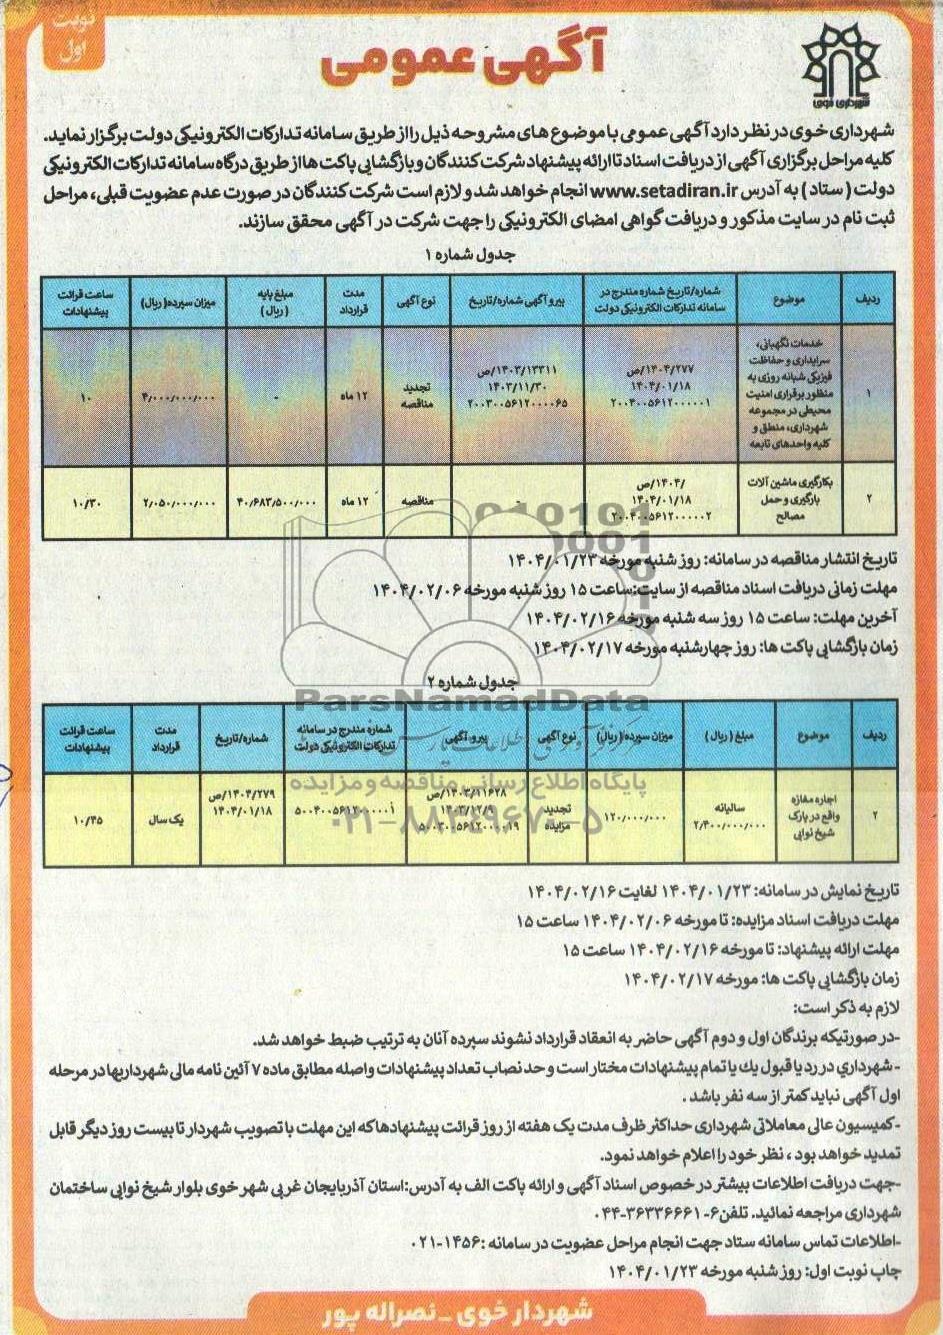 نوبت
اول
آگهی عمومی
شهرداری خوی
شهرداری خوی در نظر دارد آگهی عمومی با موضوع های مشروحه ذیل را از طریق سامانه تدارکات الکترونیکی دولت برگزار نماید.
کلیه مراحل برگزاری آگهی از دریافت اسناد تا ارائه پیشنهاد شرکت کنندگان و بازگشایی پاکت ها از طریق درگاه سامانه تدارکات الکترونیکی
دولت ( ستاد ) به آدرس www.setadiran.ir انجام خواهد شد و لازم است شرکت کنندگان در صورت عدم عضویت قبلی، مراحل
ثبت نام در سایت مذکور و دریافت گواهی امضای الکترونیکی را جهت شرکت در آگهی محقق سازند.
جدول شماره ۱
ردیف
موضوع
شماره/تاریخ شماره مندرج در
سامانه تدارکات الکترونیکی دولت
پیرو آگهی شماره/تاریخ
نوع آگهی
مدت
قرارداد
مبلغ پایه
( ریال )
میزان سپرده( ریال)
ساعت قرائت
پیشنهادات
۱
خدمات نگهبانی،
سرایداری و حفاظت
فیزیکی شبانه روزی به
منظور برقراری امنیت
محیطی در مجموعه
شهرداری، منطق و
کلیه واحدهای تابعه
۱۴۰۴/۲۷۷/ص
۱۴۰۴/۰۱/۱۸
۲۰۰۴۰۰۵۶۱۲۰۰۰۰۰۱
۱۴۰۳/۱۳۳۱۱/ص
۱۴۰۳/۱۱/۳۰
۲۰۰۳۰۰۵۶۱۲۰۰۰۰۶۵
تجدید
مناقصه
۱۲ ماه
-
۴/۰۰۰/۰۰۰/۰۰۰
۱۰
۲
بکارگیری ماشین آلات
بارگیری و حمل
مصالح
۱۴۰۴/ص/
۱۴۰۴/۰۱/۱۸
۲۰۰۴۰۰۵۶۱۲۰۰۰۰۰۲
-
مناقصه
۱۲ ماه
۴۰/۶۸۳/۵۰۰/۰۰۰
۲/۰۵۰/۰۰۰/۰۰۰
۱۰/۳۰
تاریخ انتشار مناقصه در سامانه: روز شنبه مورخه ۱۴۰۴/۰۱/۲۳
مهلت زمانی دریافت اسناد مناقصه از سایت:ساعت ۱۵ روز شنبه مورخه ۱۴۰۴/۰۲/۰۶
آخرین مهلت: ساعت ۱۵ روز سه شنبه مورخه ۱۴۰۴/۰۲/۱۶
زمان بازگشایی پاکت ها: روز چهارشنبه مورخه ۱۴۰۴/۰۲/۱۷
ParsNamadData
جدول شماره ۲
ردیف
موضوع
مبلغ ( ریال )
میزان سپرده( ریال)
نوع آگهی
پیرو آگهی
شماره مندرج در سامانه
تدارکات الکترونیکی دولت
شماره/تاریخ
مدت
قرارداد
ساعت قرائت
پیشنهادات
۲
اجاره مغازه
واقع در پارک
شیخ نوایی
سالیانه
۲/۴۰۰/۰۰۰/۰۰۰
۱۲۰/۰۰۰/۰۰۰
تجدید
مزایده
۱۴۰۳/۱۱۶۲۸/ص
۱۴۰۳/۱۲/۹
۵۰۰۳۰۰۵۶۱۲۰۰۰۰۱۹
۵۰۰۴۰۰۵۶۱۲۰۰۰۰۰۱
۱۴۰۴/۲۷۹/ص
۱۴۰۴/۰۱/۱۸
یک سال
۱۰/۴۵
پایگاه اطلاع رسانی مناقصه و مزایده
۰۲۱-۸۸۳۴۹۶۷۰-۵
تاریخ نمایش در سامانه: ۱۴۰۴/۰۱/۲۳ لغایت ۱۴۰۴/۰۲/۱۶
مهلت دریافت اسناد مزایده: تا مورخه ۱۴۰۴/۰۲/۰۶ ساعت ۱۵
مهلت ارائه پیشنهاد: تا مورخه ۱۴۰۴/۰۲/۱۶ ساعت ۱۵
زمان بازگشایی پاکت ها: مورخه ۱۴۰۴/۰۲/۱۷
لازم به ذکر است:
-در صورتیکه برندگان اول و دوم آگهی حاضر به انعقاد قرارداد نشوند سپرده آنان به ترتیب ضبط خواهد شد.
- شهرداري در رد یا قبول یك یا تمام پیشنهادات مختار است و حد نصاب تعداد پیشنهادات واصله مطابق ماده ۷ آئین نامه مالی شهرداریها در مرحله
اول آگهی نباید کمتر از سه نفر باشد .
-کمیسیون عالی معاملاتی شهرداری حداکثر ظرف مدت یک هفته از روز قرائت پیشنهادها که این مهلت با تصویب شهردار تا بیست روز دیگر قابل
تمدید خواهد بود ، نظر خود را اعلام خواهد نمود.
-جهت دریافت اطلاعات بیشتر در خصوص اسناد آگهی و ارائه پاکت الف به آدرس:استان آذربایجان غربی شهر خوی بلوار شیخ نوایی ساختمان
شهرداری مراجعه نمائید. تلفن۶-۳۶۳۳۶۶۶۱-۰۴۴
-اطلاعات تماس سامانه ستاد جهت انجام مراحل عضویت در سامانه :۱۴۵۶-۰۲۱
چاپ نوبت اول: روز شنبه مورخه ۱۴۰۴/۰۱/۲۳
شهردار خوی _ نصراله پور